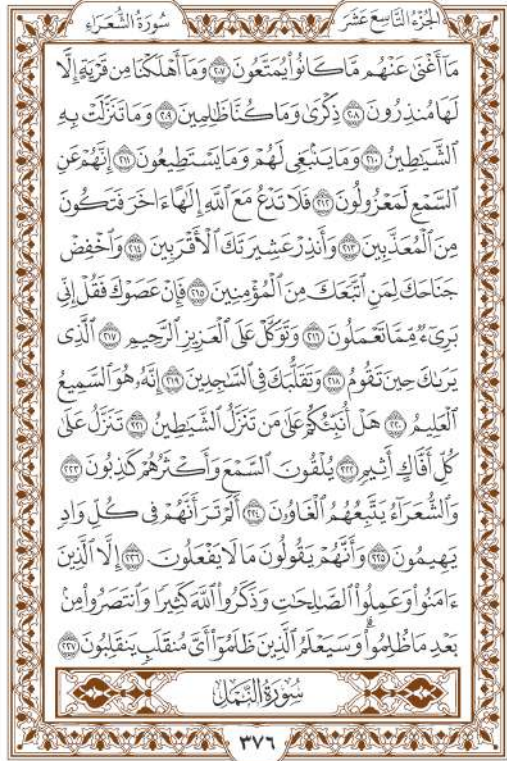 الجُزْءُ التَّاسِعَ عَشَرَ
سُورَةُ الشُّعَرَاءِ
مَآ أَغْنَىٰ عَنْهُم مَّا كَانُوا۟ يُمَتَّعُونَ ۝٢٠٧ وَمَآ أَهْلَكْنَا مِن قَرْيَةٍ إِلَّا
لَهَا مُنذِرُونَ ۝٢٠٨ ذِكْرَىٰ وَمَا كُنَّا ظَٰلِمِينَ ۝٢٠٩ وَمَا تَنَزَّلَتْ بِهِ
ٱلشَّيَٰطِينُ ۝٢١٠ وَمَا يَنۢبَغِى لَهُمْ وَمَا يَسْتَطِيعُونَ ۝٢١١ إِنَّهُمْ عَنِ
ٱلسَّمْعِ لَمَعْزُولُونَ ۝٢١٢ فَلَا تَدْعُ مَعَ ٱللَّهِ إِلَٰهًا ءَاخَرَ فَتَكُونَ
مِنَ ٱلْمُعَذَّبِينَ ۝٢١٣ وَأَنذِرْ عَشِيرَتَكَ ٱلْأَقْرَبِينَ ۝٢١٤ وَٱخْفِضْ
جَنَاحَكَ لِمَنِ ٱتَّبَعَكَ مِنَ ٱلْمُؤْمِنِينَ ۝٢١٥ فَإِنْ عَصَوْكَ فَقُلْ إِنِّى
بَرِىٓءٌ مِّمَّا تَعْمَلُونَ ۝٢١٦ وَتَوَكَّلْ عَلَى ٱلْعَزِيزِ ٱلرَّحِيمِ ۝٢١٧ ٱلَّذِى
يَرَىٰكَ حِينَ تَقُومُ ۝٢١٨ وَتَقَلُّبَكَ فِى ٱلسَّٰجِدِينَ ۝٢١٩ إِنَّهُۥ هُوَ ٱلسَّمِيعُ
ٱلْعَلِيمُ ۝٢٢٠ هَلْ أُنَبِّئُكُمْ عَلَىٰ مَن تَنَزَّلُ ٱلشَّيَٰطِينُ ۝٢٢١ تَنَزَّلُ عَلَىٰ
كُلِّ أَفَّاكٍ أَثِيمٍ ۝٢٢٢ يُلْقُونَ ٱلسَّمْعَ وَأَكْثَرُهُمْ كَٰذِبُونَ ۝٢٢٣
وَٱلشُّعَرَآءُ يَتَّبِعُهُمُ ٱلْغَاوُۥنَ ۝٢٢٤ أَلَمْ تَرَ أَنَّهُمْ فِى كُلِّ وَادٍ
يَهِيمُونَ ۝٢٢٥ وَأَنَّهُمْ يَقُولُونَ مَا لَا يَفْعَلُونَ ۝٢٢٦ إِلَّا ٱلَّذِينَ
ءَامَنُوا۟ وَعَمِلُوا۟ ٱلصَّٰلِحَٰتِ وَذَكَرُوا۟ ٱللَّهَ كَثِيرًا وَٱنتَصَرُوا۟ مِنۢ
بَعْدِ مَا ظُلِمُوا۟ ۗ وَسَيَعْلَمُ ٱلَّذِينَ ظَلَمُوٓا۟ أَىَّ مُنقَلَبٍ يَنقَلِبُونَ ۝٢٢٧
سُورَةُ النَّمْلِ
٣٧٦